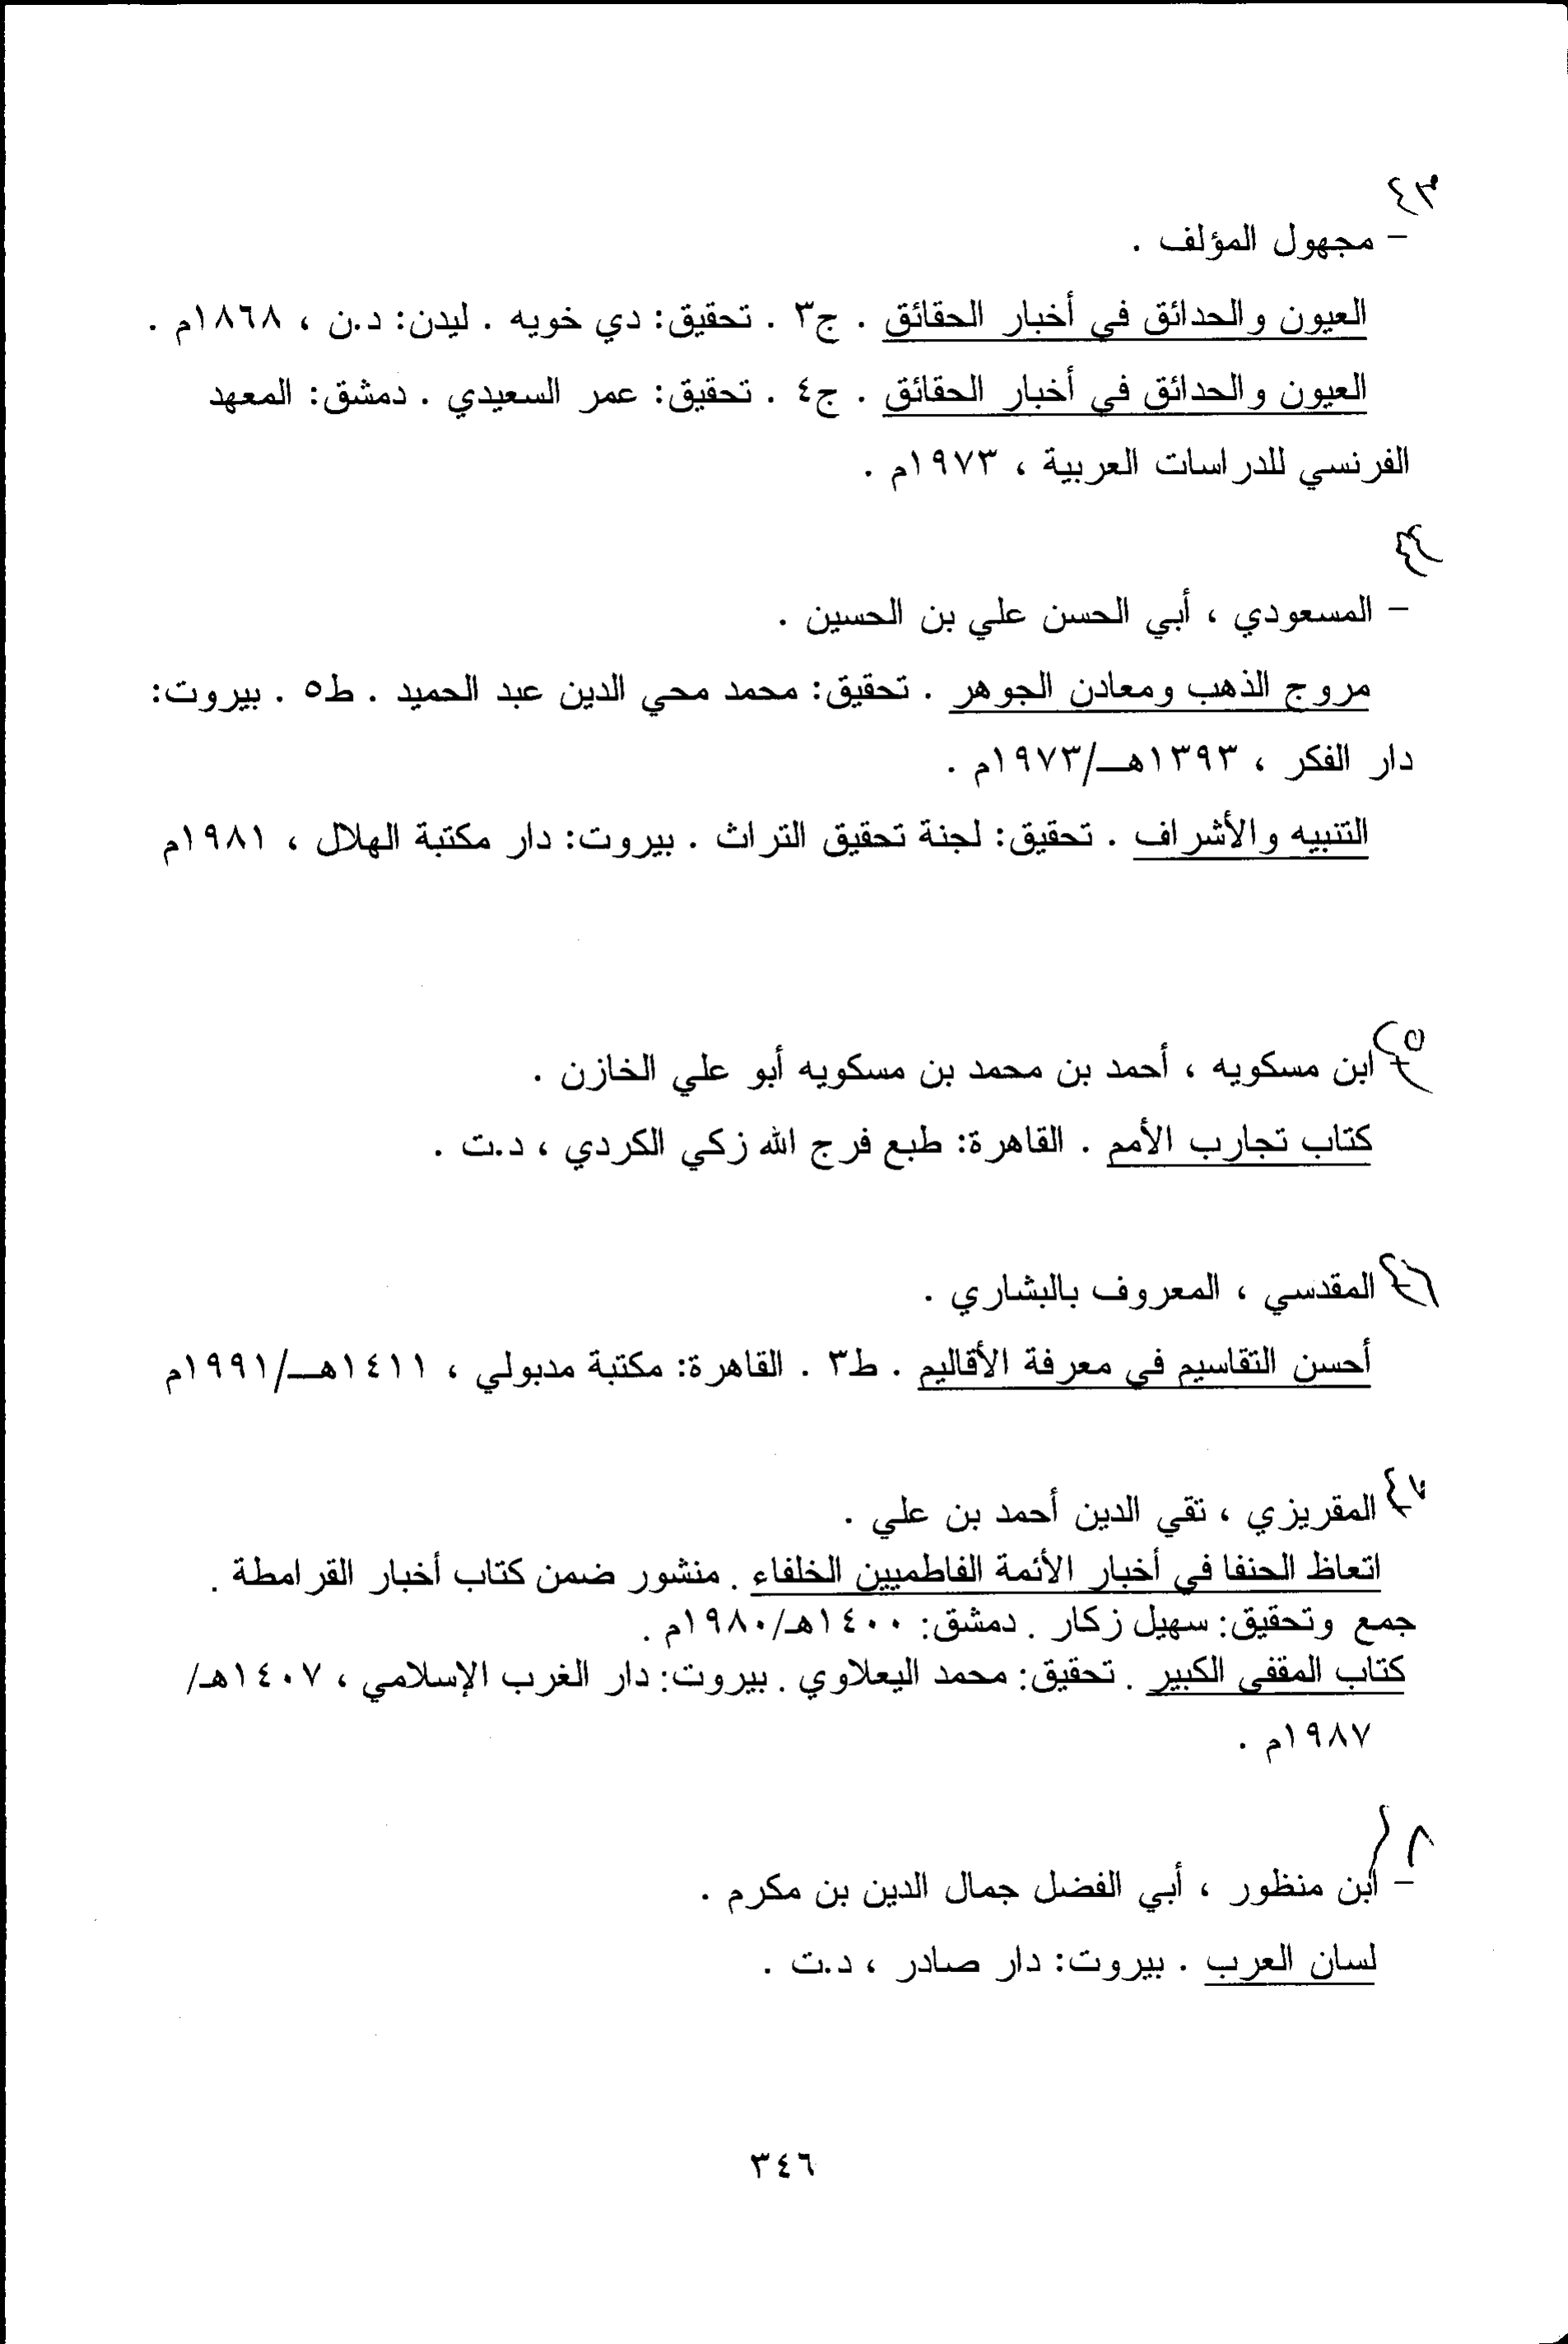 ٤٣
- مجهول المؤلف .
العيون والحدائق في أخبار الحقائق . ج٣ . تحقيق: دي خويه . ليدن: د.ن ، ١٨٦٨م .
العيون والحدائق في أخبار الحقائق . ج٤ . تحقيق: عمر السعيدي . دمشق: المعهد
الفرنسي للدراسات العربية ، ١٩٧٣م .
٤٤
- المسعودي ، أبي الحسن علي بن الحسين .
مروج الذهب ومعادن الجوهر . تحقيق: محمد محي الدين عبد الحميد . ط٥ . بيروت:
دار الفكر ، ١٣٩٣هـ/١٩٧٣م .
التنبيه والأشراف . تحقيق: لجنة تحقيق التراث . بيروت: دار مكتبة الهلال ، ١٩٨١م
٤٥
ابن مسكويه ، أحمد بن محمد بن مسكويه أبو علي الخازن .
كتاب تجارب الأمم . القاهرة: طبع فرج الله زكي الكردي ، د.ت .
٤٦
المقدسي ، المعروف بالبشاري .
أحسن التقاسيم في معرفة الأقاليم . ط٣ . القاهرة: مكتبة مدبولي ، ١٤١١هـ/١٩٩١م
٤٧
المقريزي ، تقي الدين أحمد بن علي .
اتعاظ الحنفا في أخبار الأئمة الفاطميين الخلفاء . منشور ضمن كتاب أخبار القرامطة .
جمع وتحقيق: سهيل زكار . دمشق: ١٤٠٠هـ/١٩٨٠م .
كتاب المقفى الكبير . تحقيق: محمد اليعلاوي . بيروت: دار الغرب الإسلامي ، ١٤٠٧هـ/
١٩٨٧م .
٤٨
- ابن منظور ، أبي الفضل جمال الدين بن مكرم .
لسان العرب . بيروت: دار صادر ، د.ت .
٣٤٦